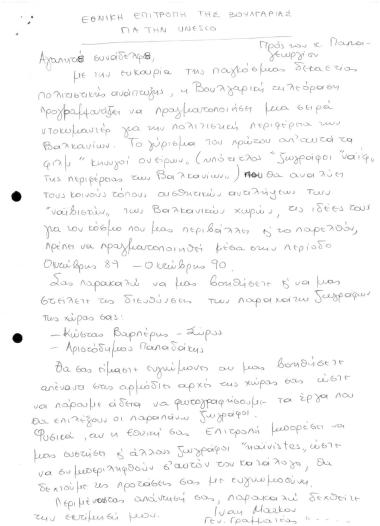 ΕΘΝΙΚΗ ΕΠΙΤΡΟΠΗ ΤΗΣ ΒΟΥΛΓΑΡΙΑΣ
ΓΙΑ ΤΗΝ UNESCO
Προς τον κ. Παπα-
γεωργίου
Αγαπητέ συνάδελφε,
με την ευκαιρία της παγκόσμιας δεκαετίας
πολιτιστικής ανάπτυξης, η Βουλγαρική τηλεόραση
προγραμματίζει να πραγματοποιήσει μια σειρά
ντοκυμαντέρ για την πολιτιστική περιφέρεια των
Βαλκανίων. Το γύρισμα του πρώτου απ' αυτά τα
φιλμ "κυνηγοί ονείρων" (υπότιτλος "ζωγράφοι "ναϊφ"
της περιφέρειας των Βαλκανίων) που θα αναλύει
τους κοινούς τόπους αισθητικών αντιλήψεων των
"ναϊβιστών" των Βαλκανικών χωρών, τις ιδέες τους
για τον κόσμο που μας περιβάλλει ή το παρελθόν,
πρέπει να πραγματοποιηθεί μέσα στην περίοδο
Οκτώβρης 89 - Οκτώβρης 90.
Σας παρακαλώ να μας βοηθήσετε ή να μας
στείλετε τις διευθύνσεις των παρακάτω ζωγράφων
της χώρας σας:
- Κώστας - Σύρος
- Αριστόδημος Παπαδάκης
Θα σας είμαστε ευγνώμονες αν μας βοηθήσετε
απέναντι στις αρμόδιες αρχές της χώρας σας ώστε
να πάρουμε άδεια να φωτογραφήσουμε τα έργα που
θα επιλέξουν οι παραπάνω ζωγράφοι.
Φυσικά, αν η Εθνική σας Επιτροπή μπορέσει να
μας συστήσει ή άλλους ζωγράφους "naivistes", ώστε
να συμπεριληφθούν σ' αυτόν τον κατάλογο, θα
δεχτούμε τις προτάσεις σας με ευγνωμοσύνη.
Περιμένοντας απάντησή σας, παρακαλώ δεχθείτε
την εκτίμησή μου. Ivan
Γεν. Γραμματέας